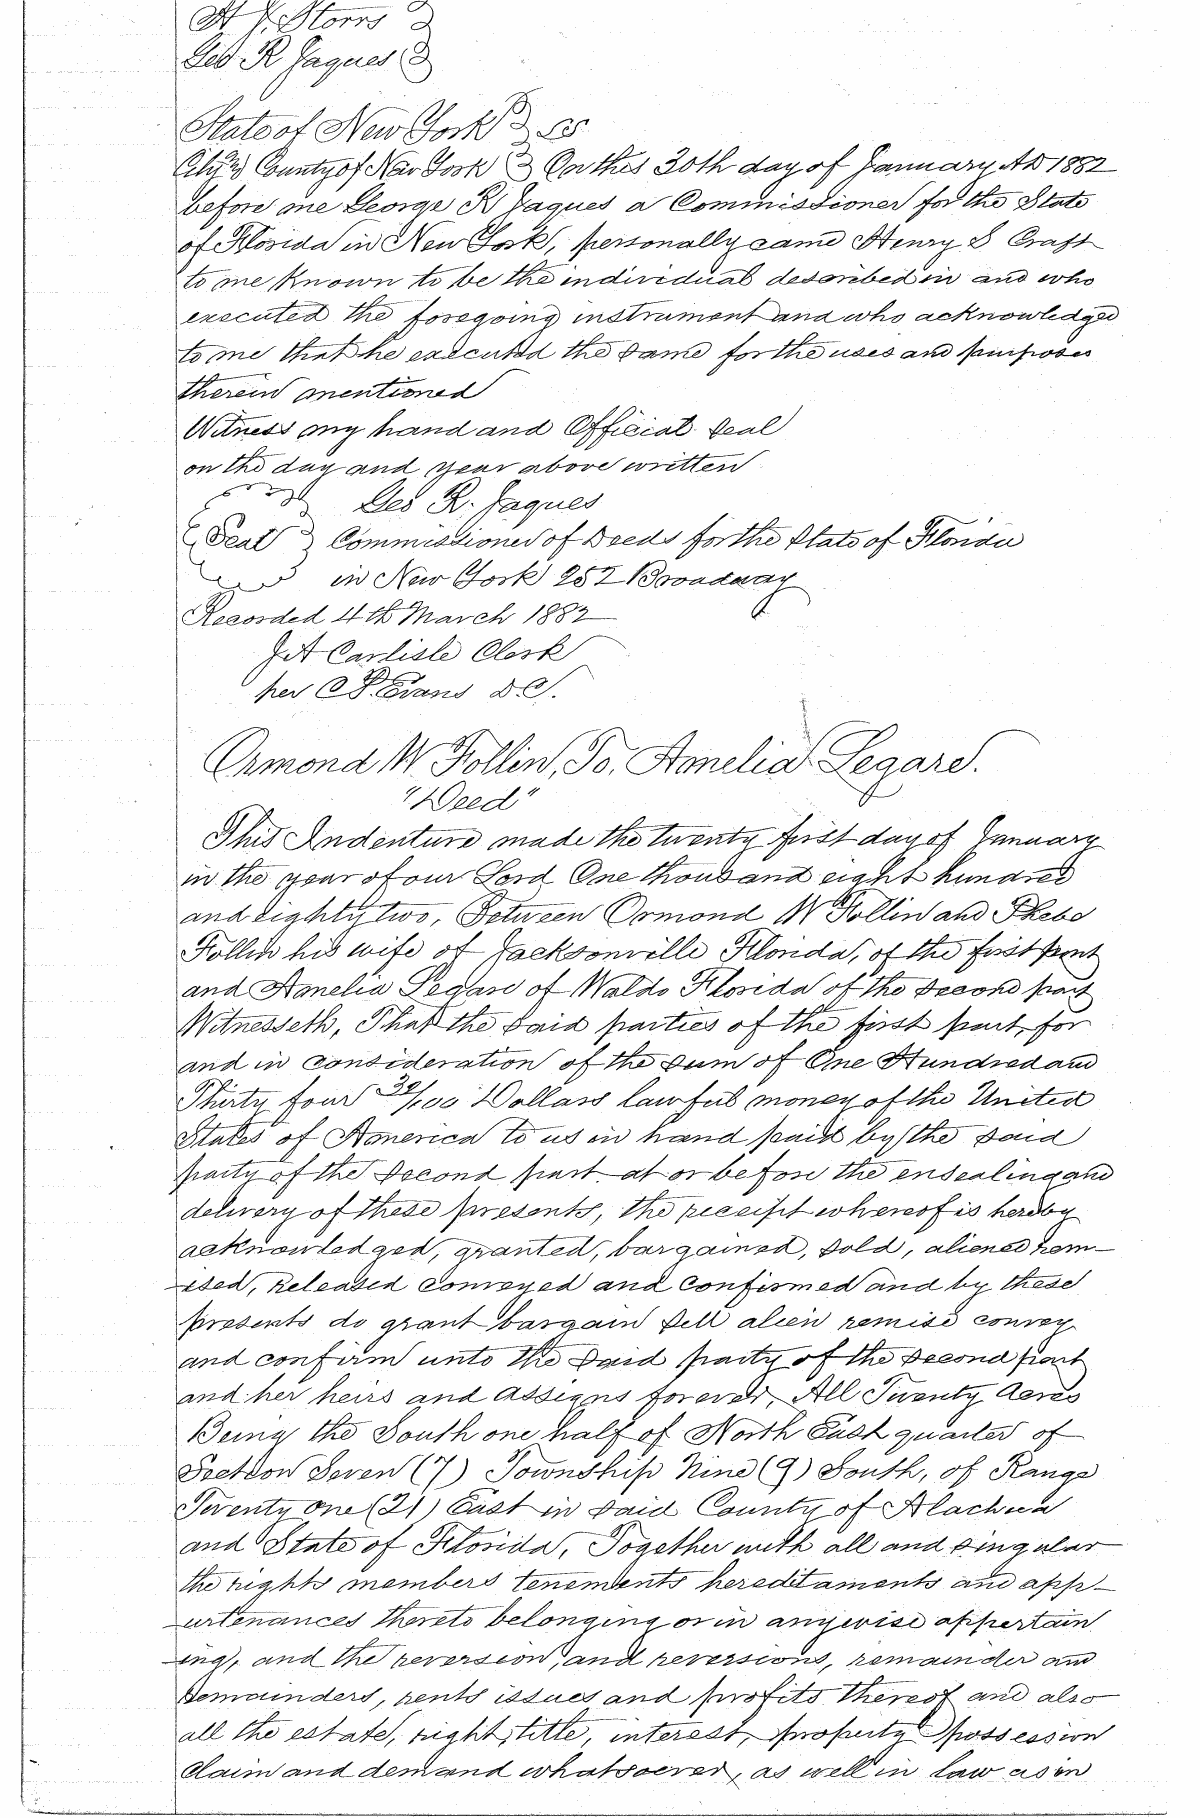 Storrs
Geo R Jaques
State of New York } SS
City & County of New York } On this 30th day of January AD 1882
before me George R Jaques a Commissioner for the State
of Florida in New York, personally came Henry S Craft
to me known to be the individual described in and who
executed the foregoing instrument and who acknowledged
to me that he executed the same for the uses and purposes
therein mentioned
Witness my hand and Official Seal
on the day and year above written
Geo R. Jaques
Seal Commissioner of Deeds for the State of Florida
in New York 257 Broadway
Recorded 4th March 1882
J A Carlisle Clerk
per Evans D.C.
Ormond W Follin, To, Amelia Legare.
"Deed"
This Indenture made the twenty first day of January
in the year of our Lord One thousand eight hundred
and eighty two, Between Ormond W Follin and Phebe
Follin his wife of Jacksonville Florida, of the first part
and Amelia Legare of Waldo Florida of the second part
Witnesseth, That the said parties of the first part, for
and in consideration of the sum of One Hundred and
Thirty four /100 Dollars lawful money of the United
States of America to us in hand paid by the said
party of the second part at or before the ensealing and
delivery of these presents, the receipt whereof is hereby
acknowledged, granted, bargained, sold, aliened rem-
ised, released conveyed and confirmed and by these
presents do grant bargain sell alien remise convey
and confirm unto the said party of the second part
and her heirs and assigns forever, All Twenty Acres
Being the South one half of North East quarter of
Section Seven (7) Township Nine (9) South, of Range
Twenty one (21) East in said County of Alachua
and State of Florida, Together with all and singular
the rights members tenements hereditaments and app-
urtenances thereto belonging or in anywise appertain
ing, and the reversion, and reversions, remainder and
remainders, rents issues and profits thereof and also
all the estate, right, title, interest, property possession
claim and demand whatsoever, as well in law as in